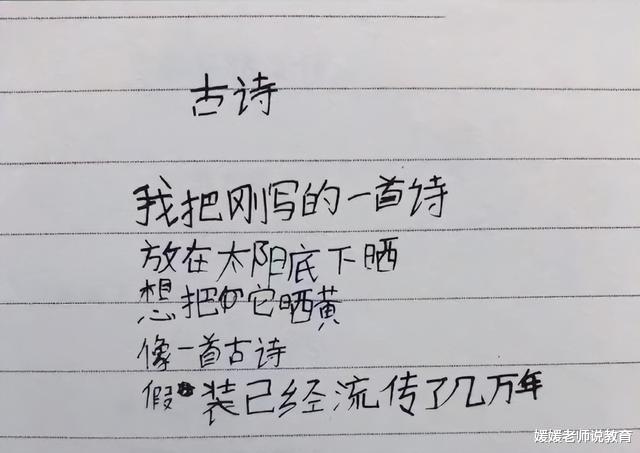 古诗
我把刚写的一首诗
放在太阳底下晒
想把它晒黄
像一首古诗
假装已经流传了几万年
媛媛老师说教育